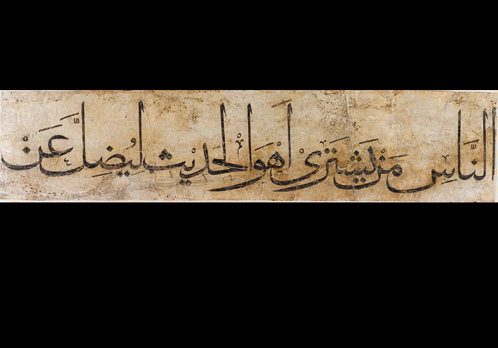 النَّاسِ مَنْ يَشتَرِى لَهْوَ الْحَدِيثِ لِيُضِلَّ عَنْ